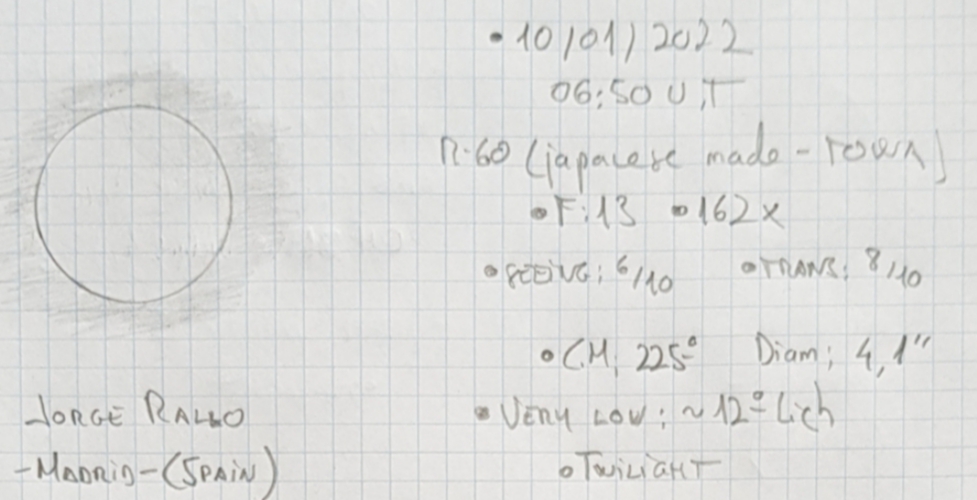 • 10/01/2022
06:50 U.T
R-60 (japanese made - TOWA)
• F:13 • 162x
• SEEING: 6/10 • TRANS: 8/10
• CM: 225º Diam: 4,1"
JORGE RALLO
• VERY LOW: ~12º
-MADRID-(SPAIN)
• TWILIGHT